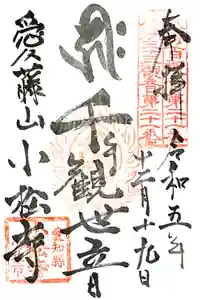 奉拝
令和五年
十二月十九日
千手観世音
愛藤山 小松寺
愛知縣